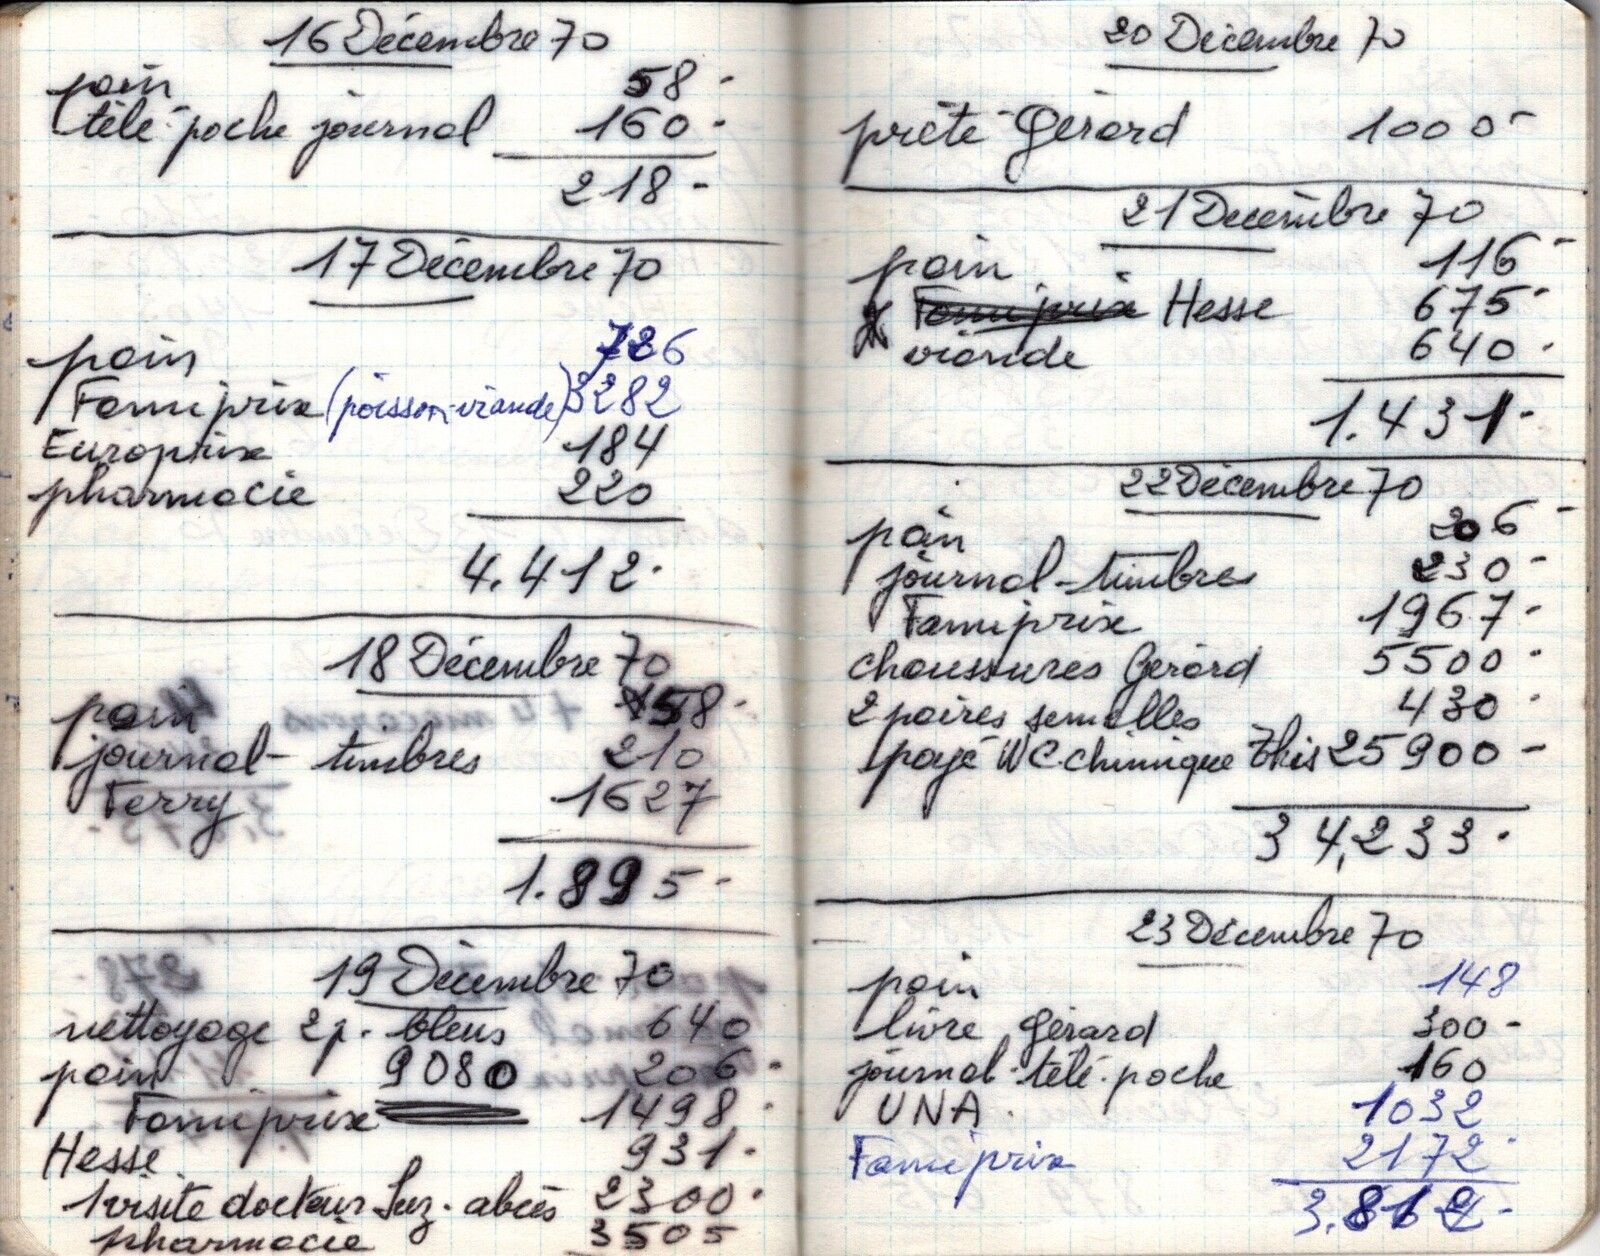 16 Décembre 70
pain 58-
télé-poche journal 160-
218-
17 Décembre 70
pain 726
Famiprix (poisson-viande) 3282
Europrix 184
pharmacie 220
4.412-
18 Décembre 70
pain 58-
journal - timbres 210
Ferry 1627
1.895-
19 Décembre 70
nettoyage 2 p. bleus 640
pain 9080 206-
Famiprix 1498-
Hesse 931-
1 visite docteur Suz. abcès 2300-
pharmacie 3505
20 Décembre 70
prêté Gérard 1000-
21 Décembre 70
pain 116-
Famiprix Hesse 675-
viande 640-
1.431-
22 Décembre 70
pain 206-
journal - timbres 230-
Famiprix 1967-
chaussures Gérard 5500-
2 paires semelles 430-
payé WC. chimique This 25900-
34,233-
23 Décembre 70
pain 148
livre Gérard 300-
journal-télé-poche 160
UNA. 1032
Famiprix 2172-
3.812-